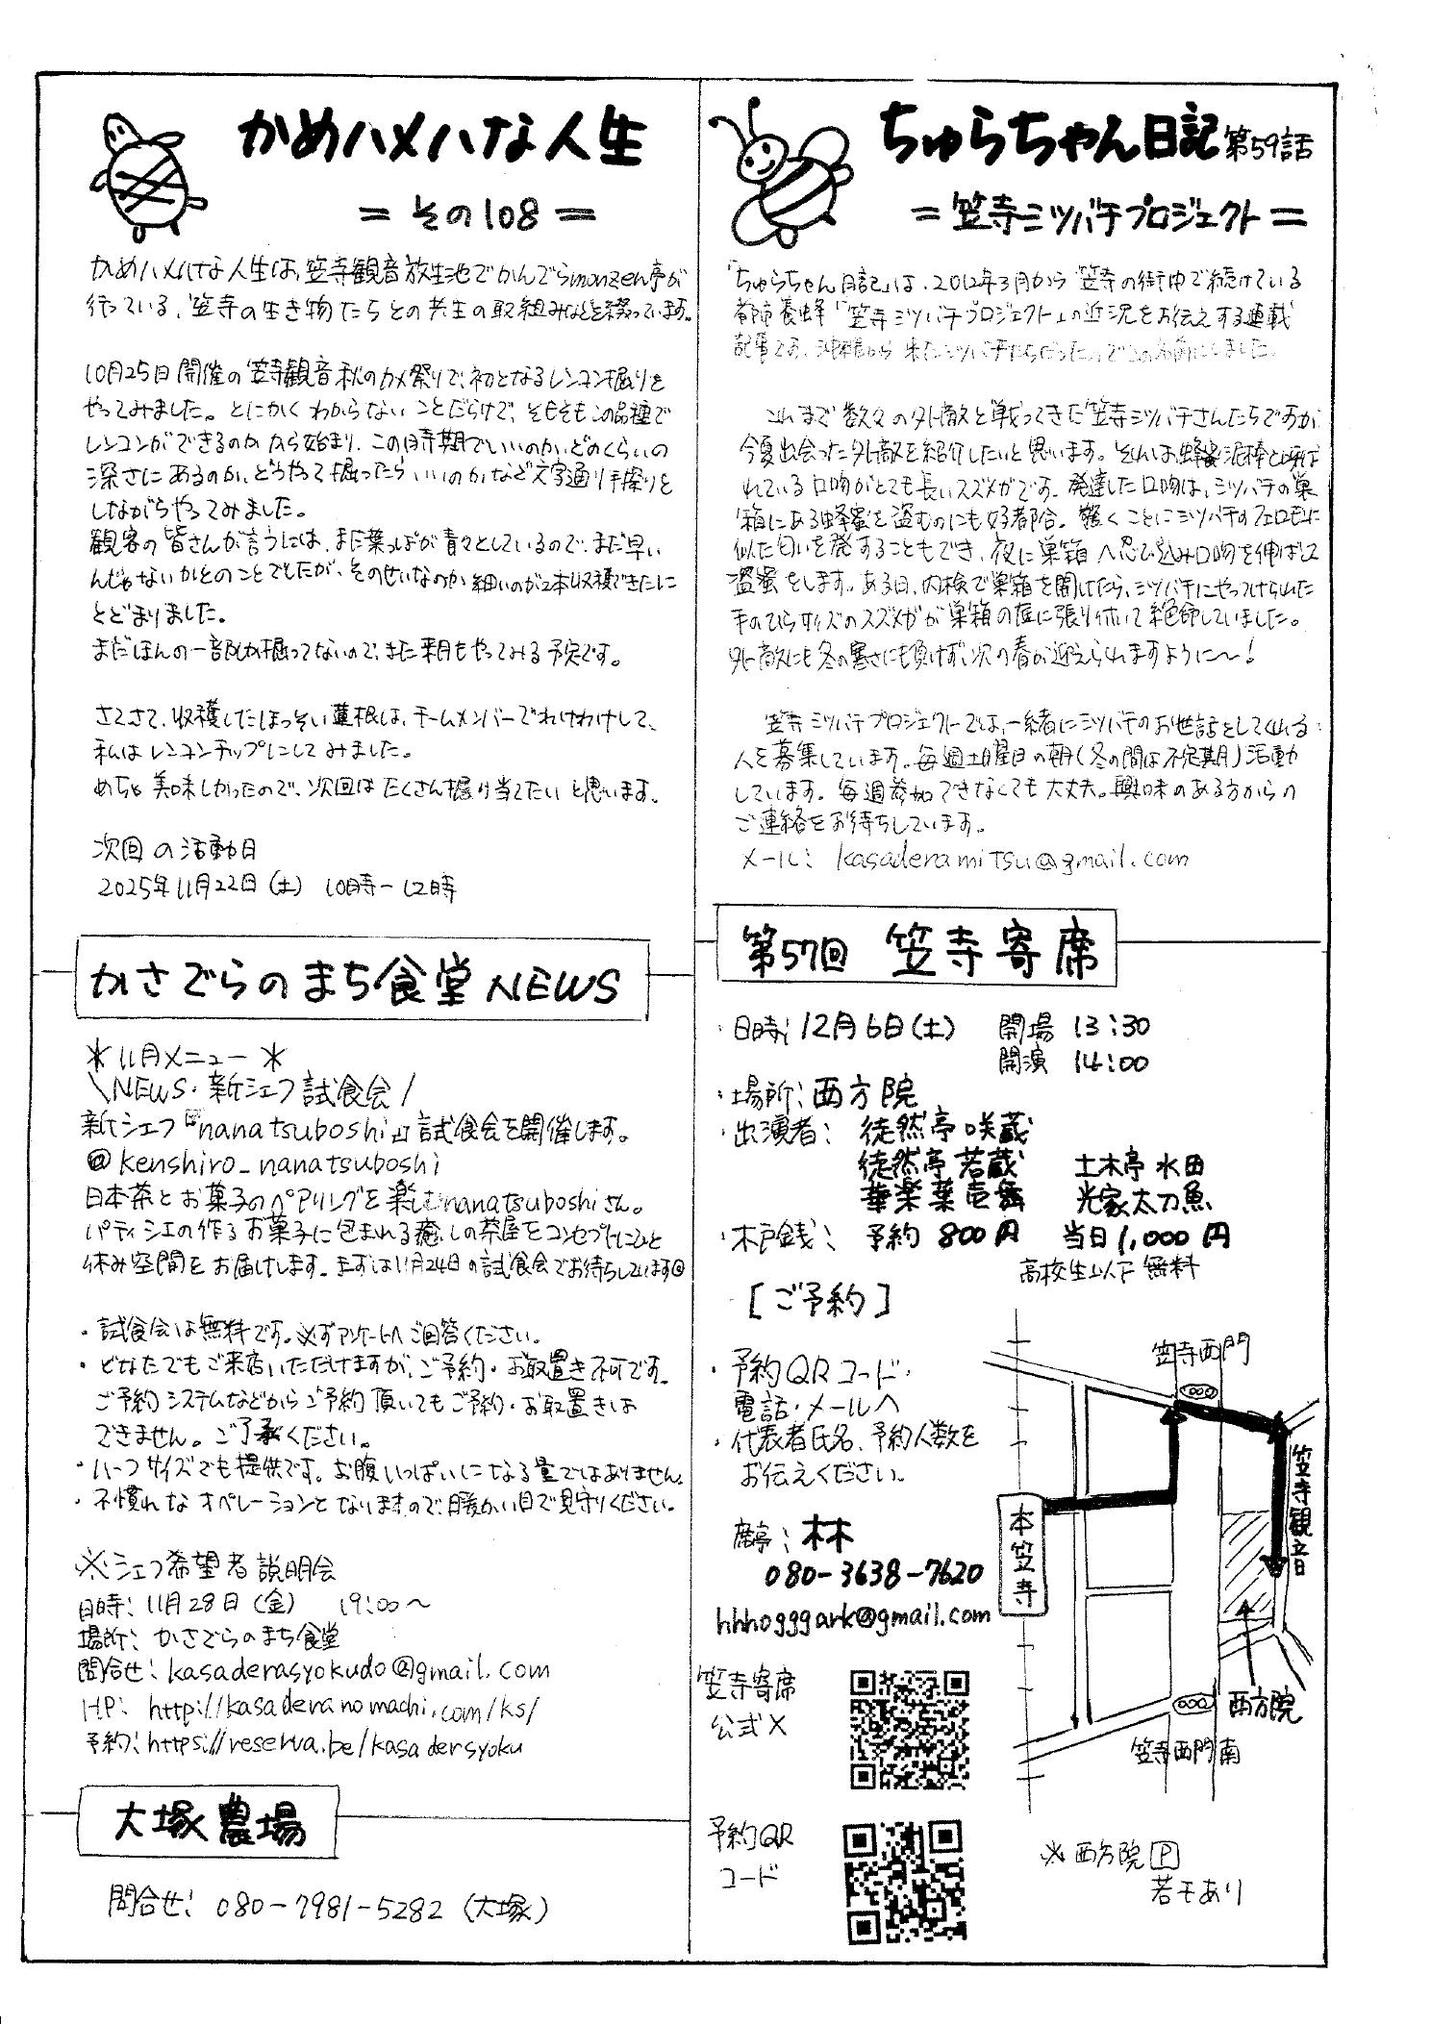 かめハメハな人生
＝その108＝
かめハメハな人生は、笠寺観音放生池でかんでらmonzen亭が
行っている、笠寺の生き物たちとの共生の取組みなどを綴っています。
10月25日開催の笠寺観音秋のカメ祭りで、初となるレンコン掘りを
やってみました。とにかくわからないことだらけで、そもそもこの品種で
レンコンができるのかから始まり、この時期でいいのか、どのくらいの
深さにあるのか、どうやって掘ったらいいのかなど文字通り手探りを
しながらやってみました。
観客の皆さんが言うには、まだ葉っぱが青々としているので、まだ早い
んじゃないかとのことでしたが、そのせいなのか細いのが2本収穫できたに
とどまりました。
まだほんの一部しか掘ってないので、また来月もやってみる予定です。
さてさて、収穫したほっそい蓮根は、チームメンバーでわけわけして、
私はレンコンチップにしてみました。
めちゃ美味しかったので、次回はたくさん掘り当てたいと思います。
次回の活動日
2025年11月22日（土） 10時－12時
かさでらのまち食堂 NEWS
＊11月メニュー＊
\NEWS・新シェフ試食会/
新シェフ『nanatsuboshi』試食会を開催します。
@kenshiro_nanatsuboshi
日本茶とお菓子のペアリングを楽しむnanatsuboshiさん。
パティシエの作るお菓子に包まれる癒しの茶屋をコンセプトにひと
休み空間をお届けします。まずは11月24日の試食会でお待ちしています
・試食会は無料です。必ずアンケートへご回答ください。
・どなたでもご来店いただけますが、ご予約・お取置き不可です。
ご予約システムなどからご予約頂いてもご予約・お取置きは
できません。ご了承ください。
・ハーフサイズでも提供です。お腹いっぱいになる量ではありません。
・不慣れなオペレーションとなりますので、暖かい目で見守りください。
※シェフ希望者説明会
日時：11月28日（金） 19:00〜
場所：かさでらのまち食堂
問合せ：kasaderasyokudo@gmail.com
HP：http://kasaderanomachi.com/ks/
予約：https://reserva.be/kasadersyoku
大塚農場
問合せ：080-7981-5282（大塚）
ちゅらちゃん日記 第59話
＝笠寺ミツバチプロジェクト＝
「ちゅらちゃん日記」は、2012年3月から笠寺の街中で続けている
都市養蜂「笠寺ミツバチプロジェクト」の近況をお伝えする連載
記事です。沖縄から来たミツバチたちだったのでこの名前にしました。
これまで数々の外敵と戦ってきた笠寺ミツバチさんたちですが、
今夏出会った外敵を紹介したいと思います。それは蜂蜜泥棒と呼ば
れている口吻がとても長いスズメガです。発達した口吻は、ミツバチの巣
箱にある蜂蜜を盗むのにも好都合。驚くことにミツバチのフェロモンに
似た匂いを発することもでき、夜に巣箱へ忍び込み口吻を伸ばして
盗蜜をします。ある日、内検で巣箱を開けたら、ミツバチにやっつけられた
手のひらサイズのスズメガが巣箱の底に張り付いて絶命していました。
外敵にも冬の寒さにも負けず、次の春が迎えられますように〜！
笠寺ミツバチプロジェクトでは、一緒にミツバチのお世話をしてくれる
人を募集しています。毎週土曜日の朝（冬の間は不定期）活動
しています。毎週参加できなくても大丈夫。興味のある方からの
ご連絡をお待ちしています。
メール：kasaderamitsu@gmail.com
第57回 笠寺寄席
・日時：12月6日（土） 開場 13:30
開演 14:00
・場所：西方院
・出演者：徒然亭咲蔵
徒然亭若蔵 土木亭水田
華楽葉壱舞 光家太刀魚
・木戸銭：予約 800円 当日1,000円
高校生以下無料
[ご予約]
・予約QRコード・
電話・メールへ
・代表者氏名、予約人数を
お伝えください。
席亭：林
080-3638-7620
hhhogggark@gmail.com
笠寺寄席
公式X
予約QR
コード
笠寺西門
本笠寺
笠寺観音
西方院
笠寺西門南
※西方院P
若干あり